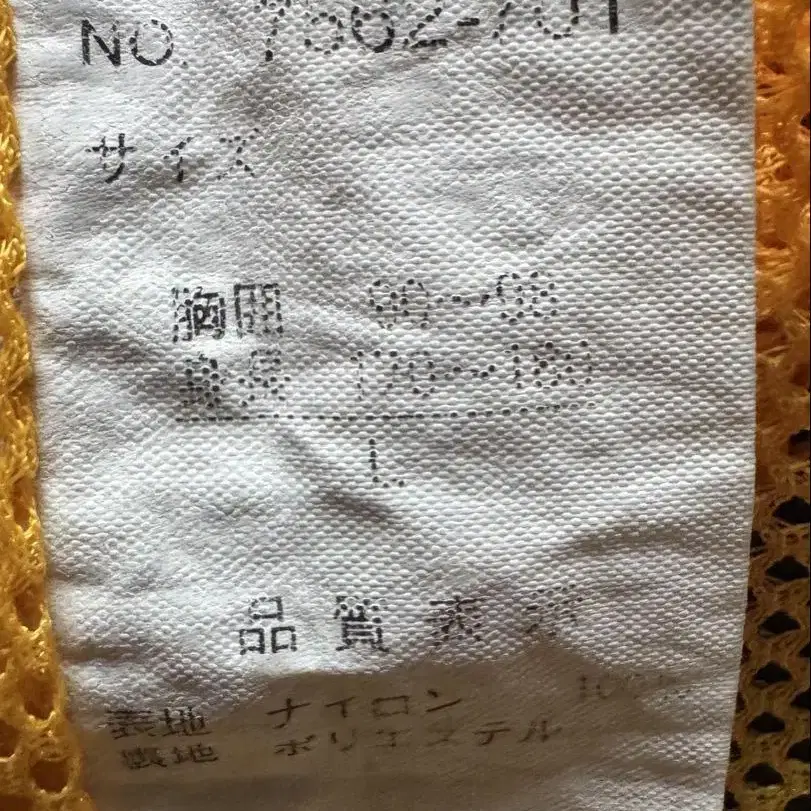 NO. 7562-701
サイズ
胸囲 90~98
身長 170~180
L
品質表示
表地 ナイロン 100%
裏地 ポリエステル